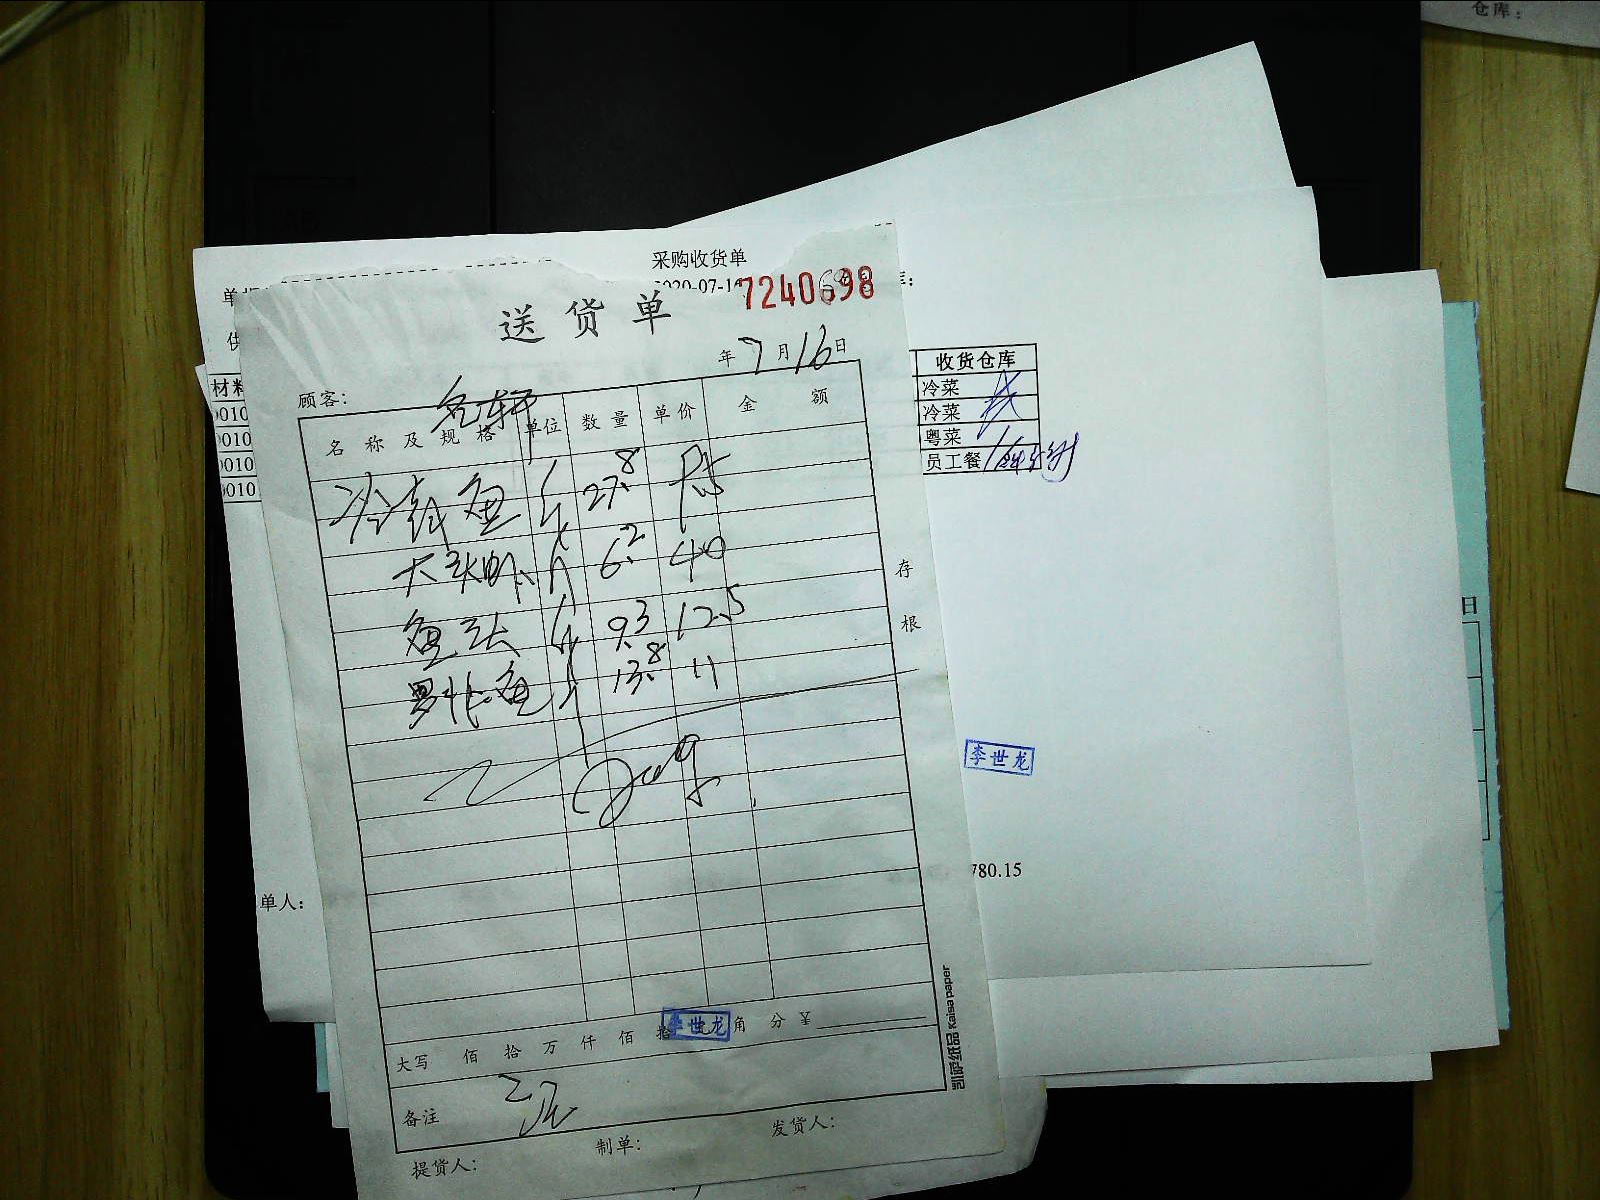 仓库:
采购收货单
2020-07-1
7240698
送货单
年7月16日
顾客:
名称及规格 单位 数量 单价 金额
收货仓库
材料
冷菜
冷菜
粤菜
员工餐
0010
0010
0010
0010
鱼 27.8
大头 6.2 40
鱼头 9.3 12.5
罗非鱼 13.8 11
存根
日
李世龙
780.15
单人:
大写 佰 拾 万 仟 佰 拾 角 分 ¥
李世龙
备注
凯萨纸品 Kaisa paper
提货人:
制单:
发货人: